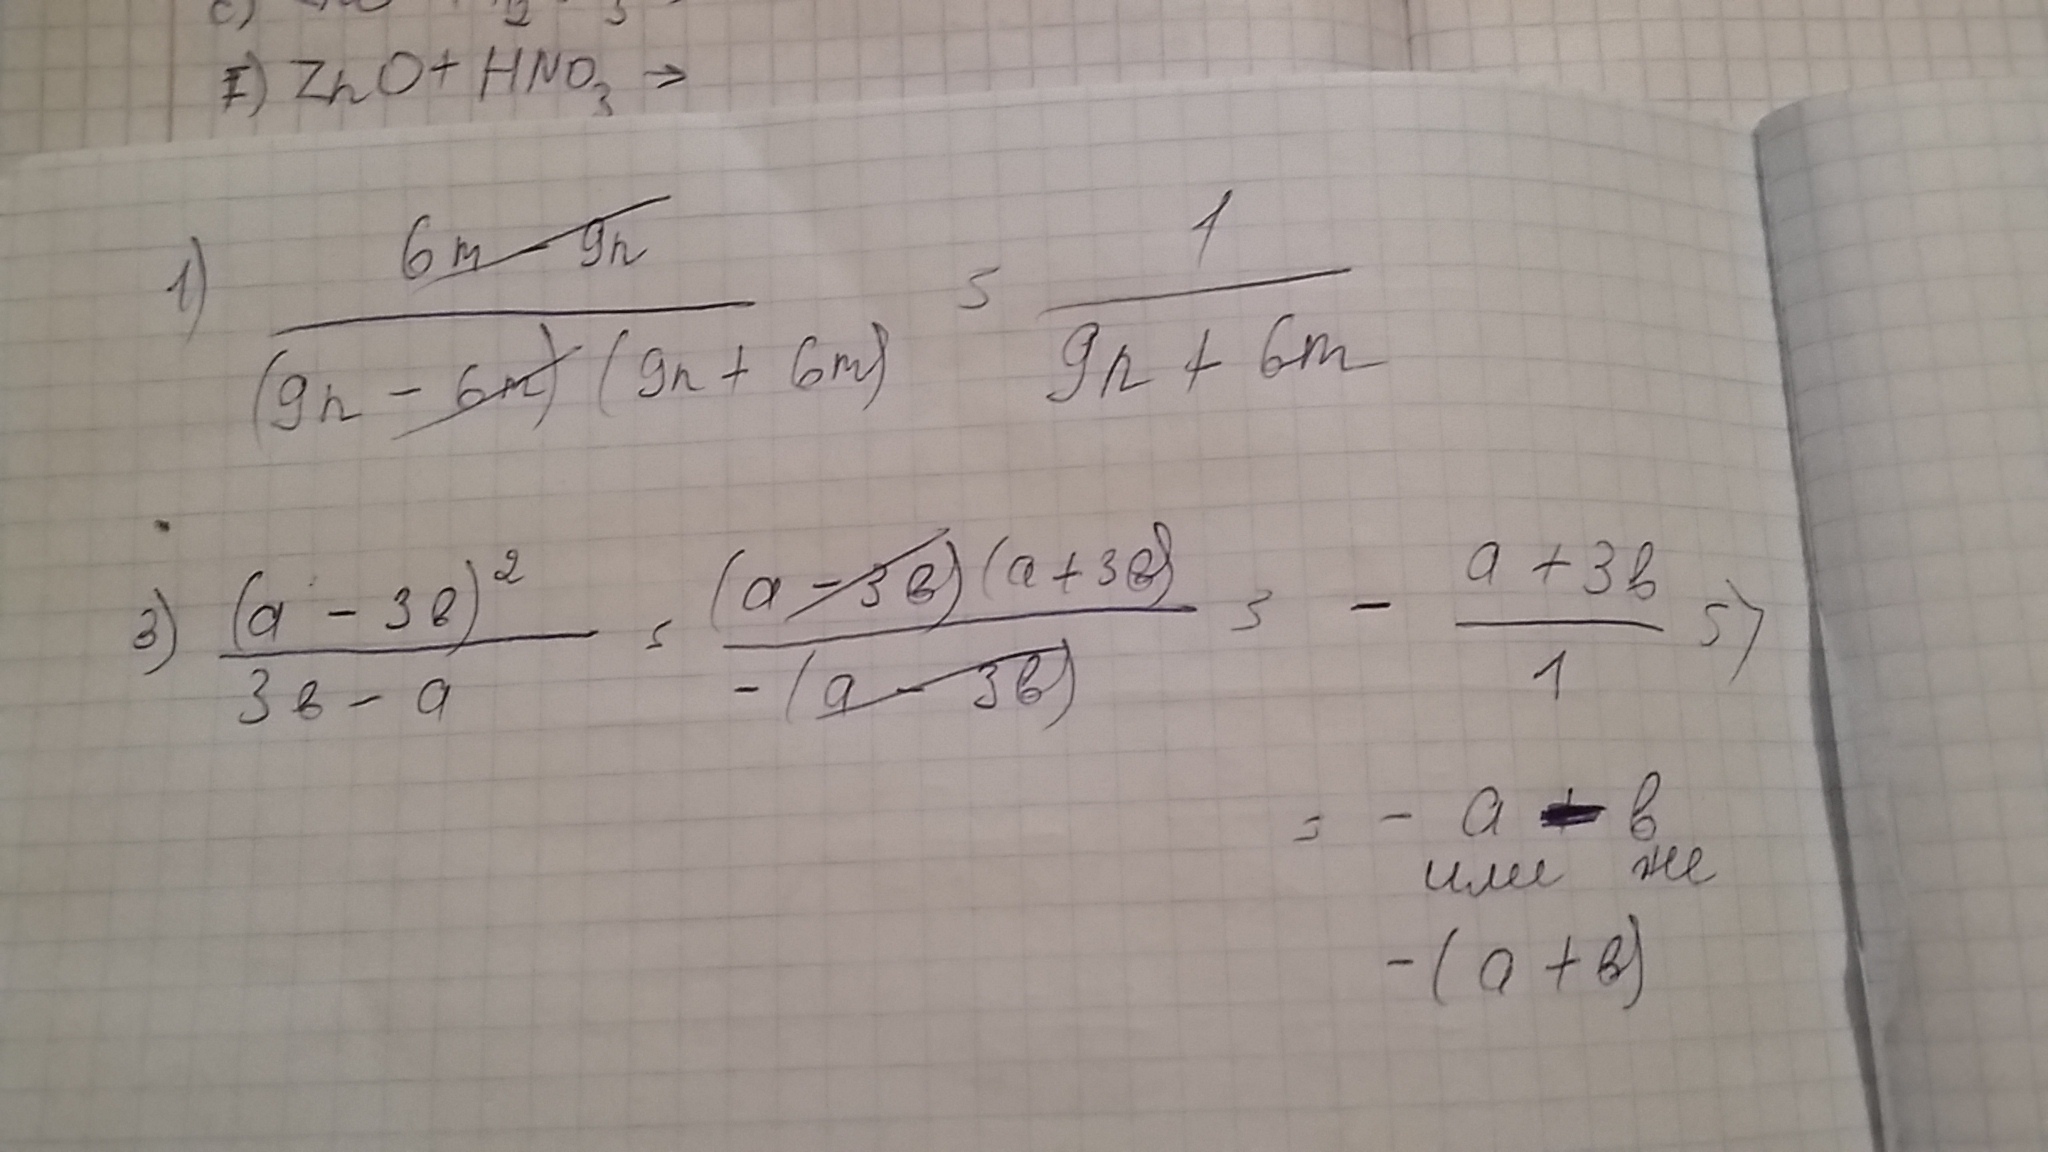 I) ZnO + HNO₃ →
1) (6m - 9n) / ((9n - 6m)(9n + 6m)) = 1 / (9n + 6m)
3) (a - 3в)² / (3в - a) = (a - 3в)(a + 3в) / (-(a - 3в)) = - (a + 3в) / 1 =>
= - a - в
или же
-(a + в)